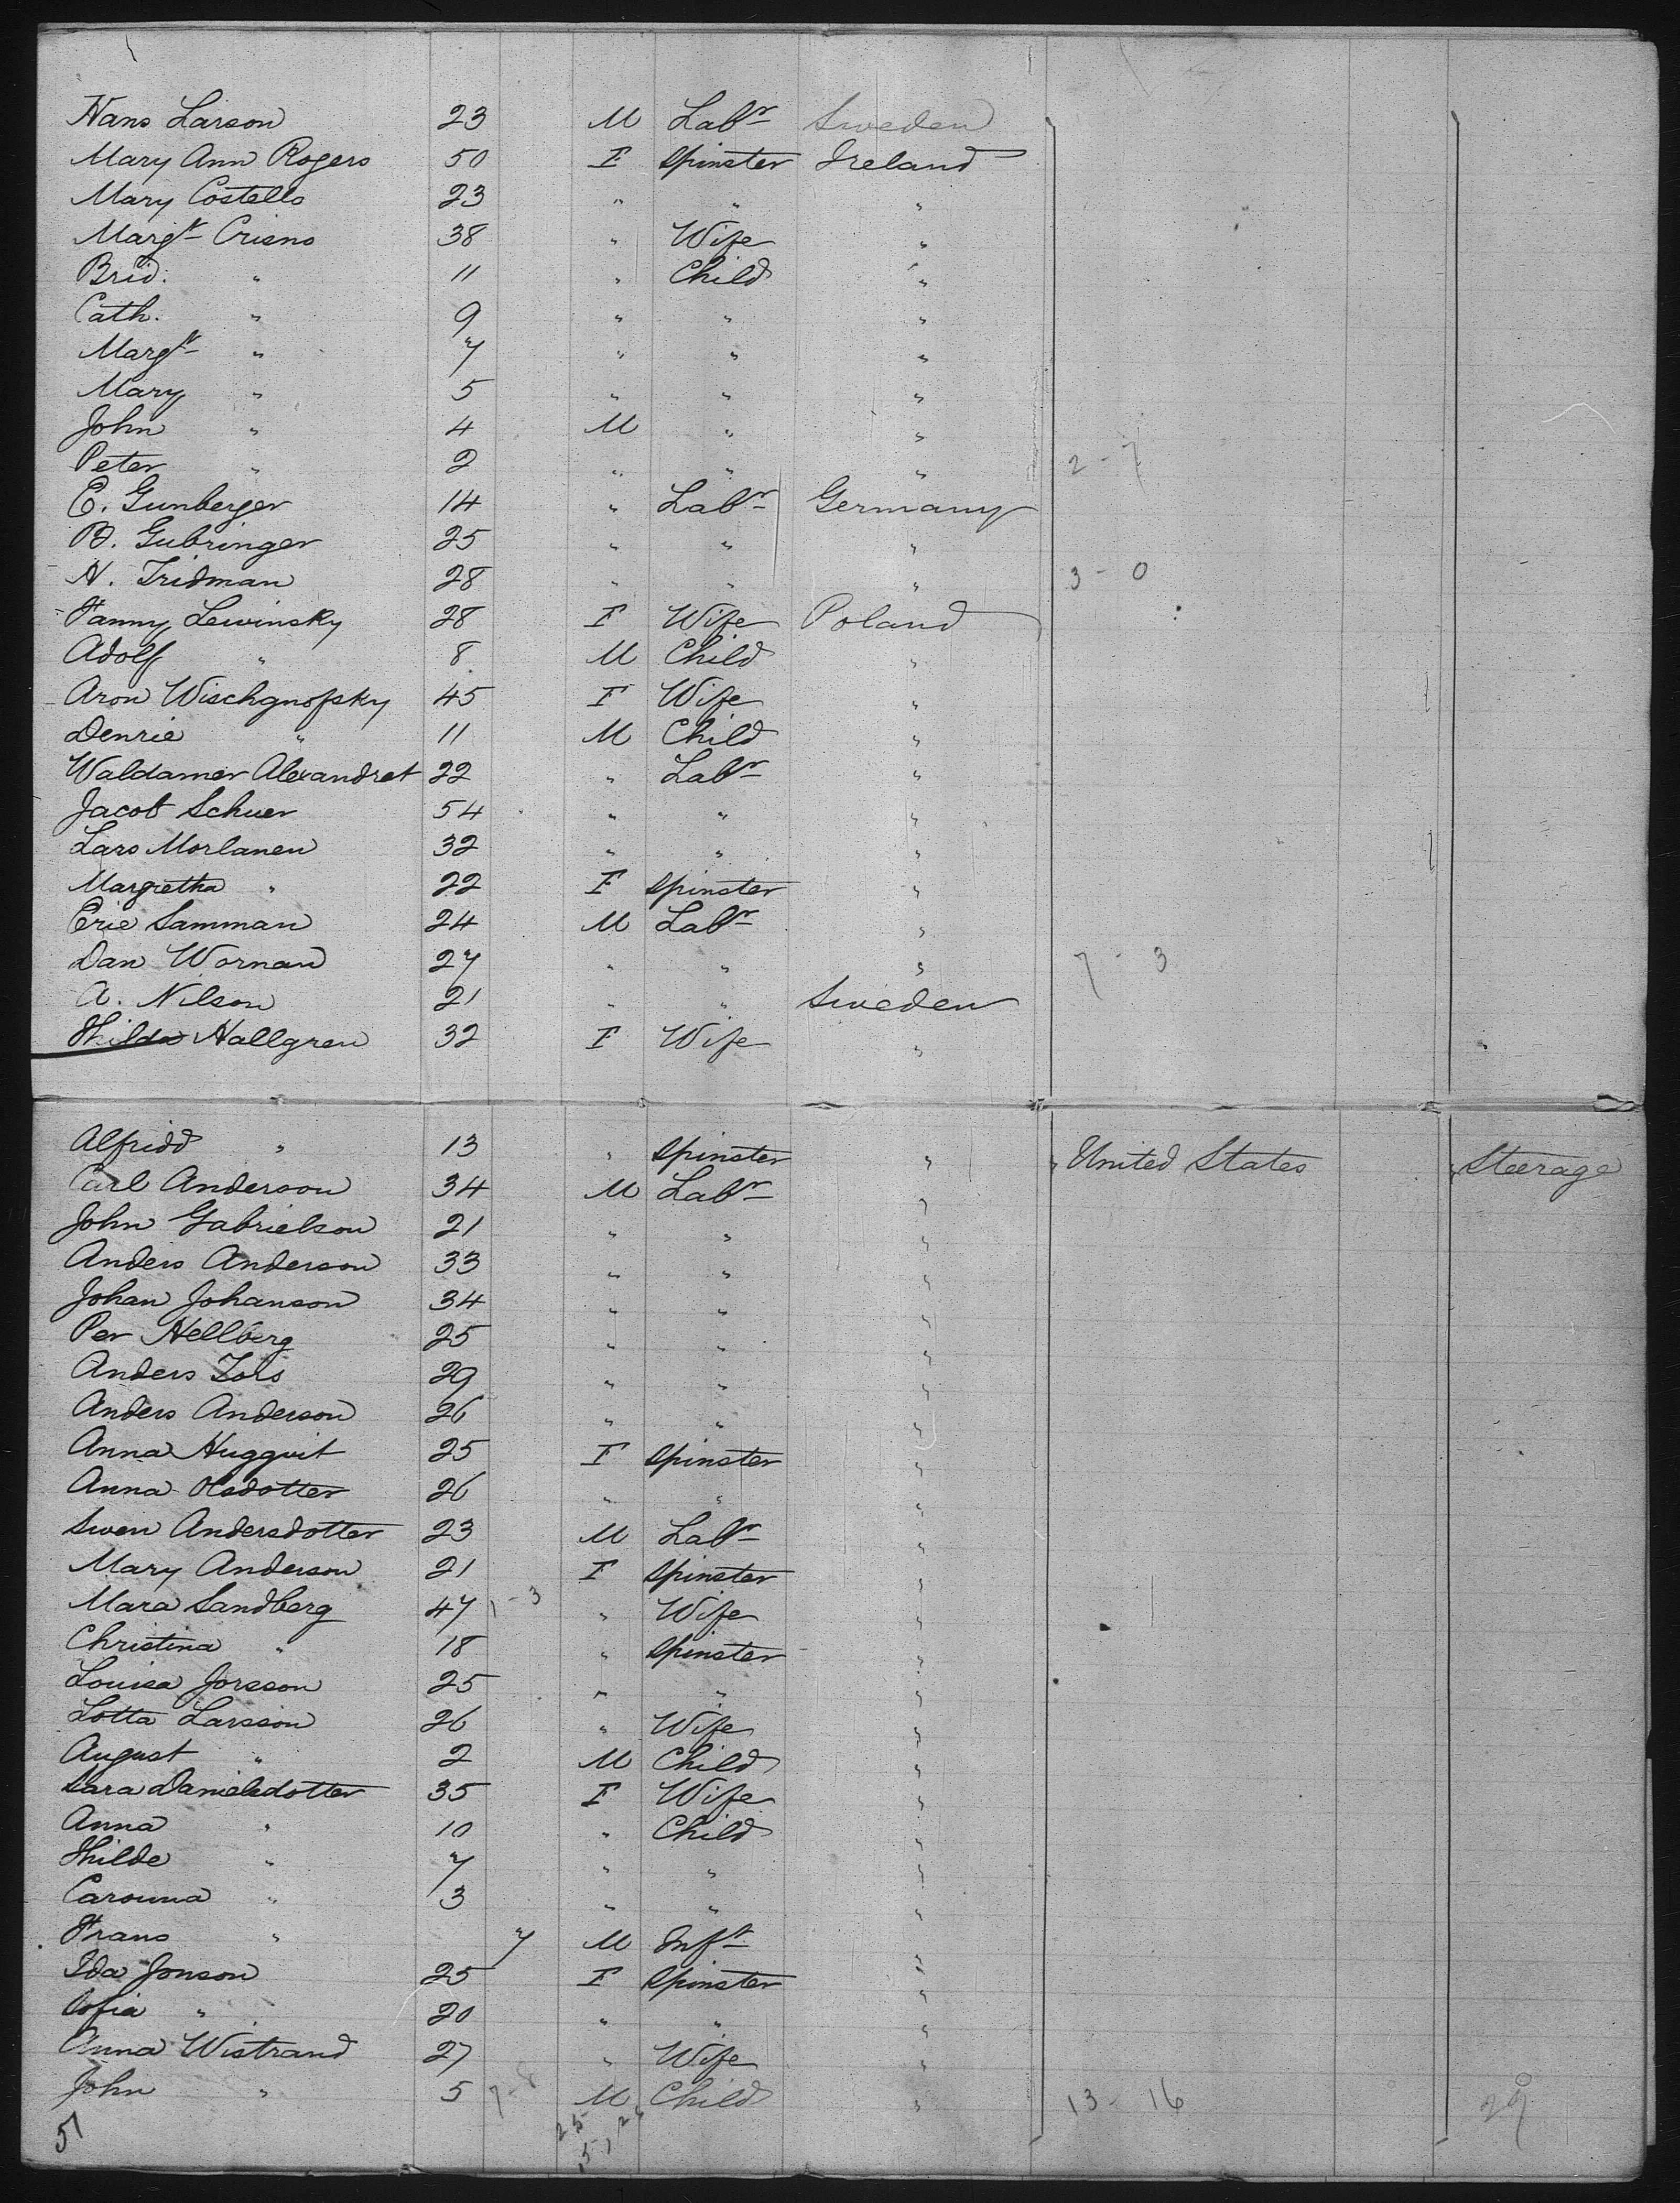 Hans Larson 23 M Labr Sweden
Mary Ann Rogers 50 F Spinster Ireland
Mary Costello 23 " " "
Margt Criens 38 " Wife "
Brid. " 11 " Child "
Cath. " 9 " " "
Margt " 7 " " "
Mary " 5 " " "
John " 4 M " "
Peter " 2 " " " 2 - 7
E. Gunberger 14 " Labr Germany
B. Gubringer 25 " " "
H. Fridman 28 " " " 3 - 0
Fanny Lewinsky 28 F Wife Poland
Adolf " 8 M Child "
Aron Wischgnofsky 45 F Wife "
Denrie " 11 M Child "
Waldamer Alexandret 22 " Labr "
Jacob Schuer 54 " " "
Lars Morlanen 32 " " "
Margretha " 22 F Spinster "
Eric Samman 24 M Labr "
Dan Wornan 27 " " " 7 - 3
A. Nilson 21 " " Sweden
Hilda Hallgren 32 F Wife "
Alfridd " 13 " Spinster " United States Steerage
Carl Anderson 34 M Labr "
John Gabrielson 21 " " "
Anders Anderson 33 " " "
Johan Johanson 34 " " "
Per Hellberg 25 " " "
Anders Fors 29 " " "
Anders Anderson 26 " " "
Anna Hugqvit 25 F Spinster "
Anna Olsdotter 26 " " "
Swen Andersdotter 23 M Labr "
Mary Anderson 21 F Spinster "
Mara Sandberg 47 " Wife "
Christina " 18 " Spinster "
Louisa Jorsson 25 " " "
Lotta Larsson 26 " Wife "
August " 2 M Child "
Sara Danielsdotter 35 F Wife "
Anna " 10 " Child "
Hilde " 7 " " "
Carouna " 3 " " "
Frans " 7 M Inft "
Ida Jonson 25 F Spinster "
Sofia " 20 " " "
Anna Wistrand 27 " Wife "
John " 5 7-8 M Child " 13 - 16 29
51